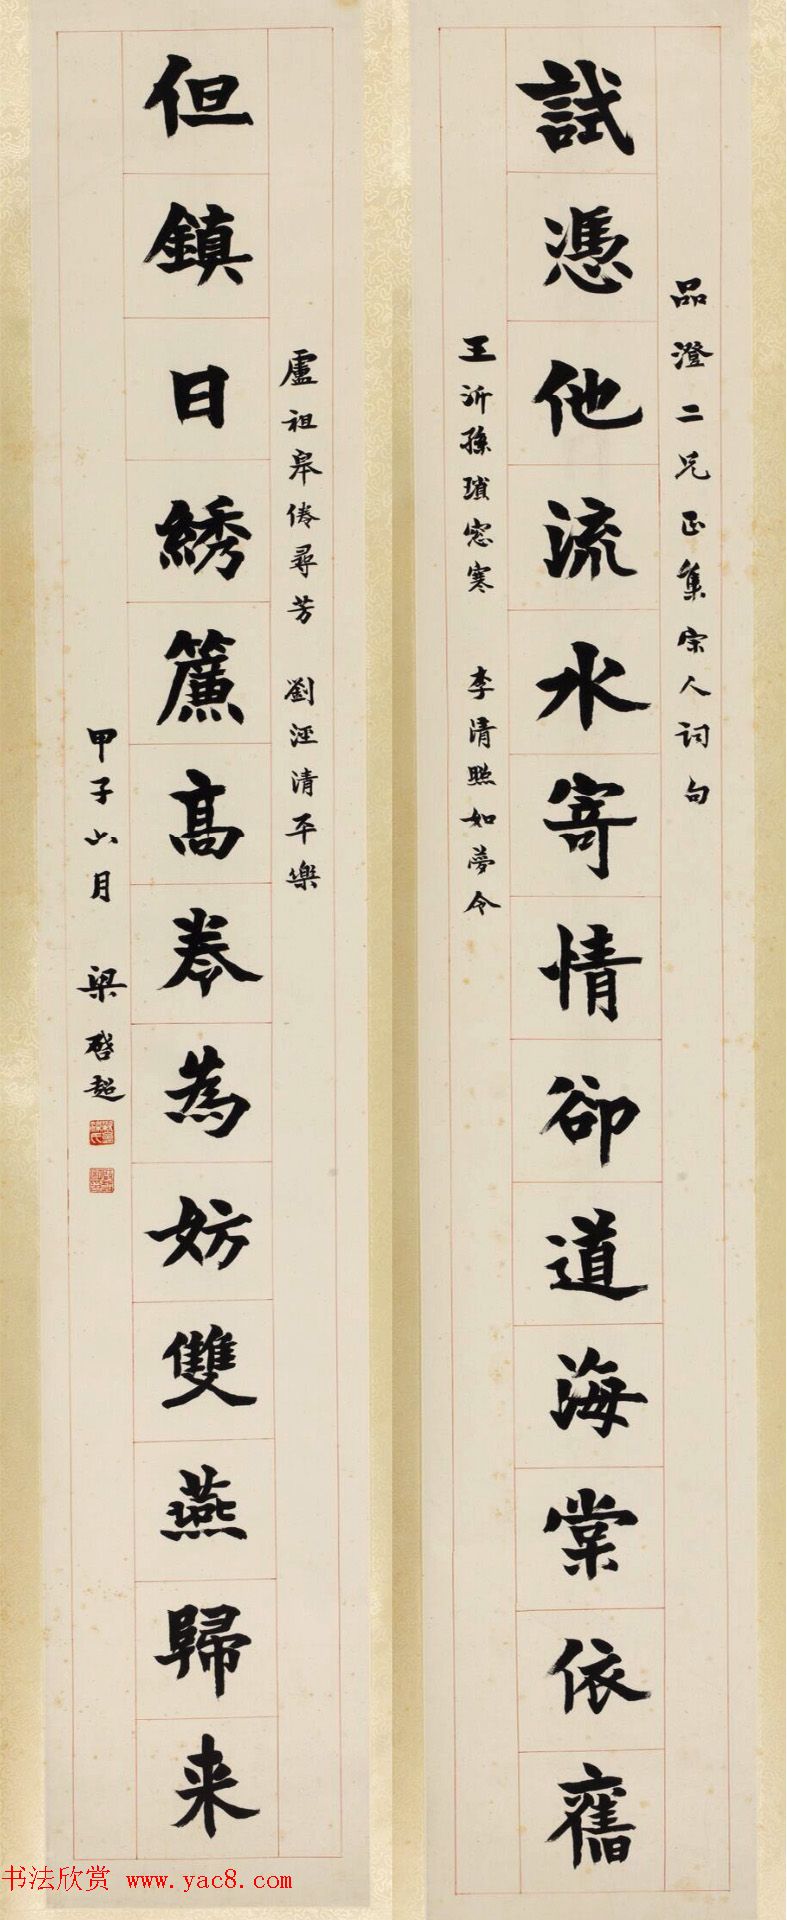 試憑他流水寄情卻道海棠依舊
品澄二兄正集宋人詞句
王沂孫瑣窓寒　李清照如夢令
但鎮日綉簾高卷為妨雙燕歸来
盧祖皋倦尋芳　劉涇清平樂
甲子六月　梁啓超
书法欣赏 www.yac8.com